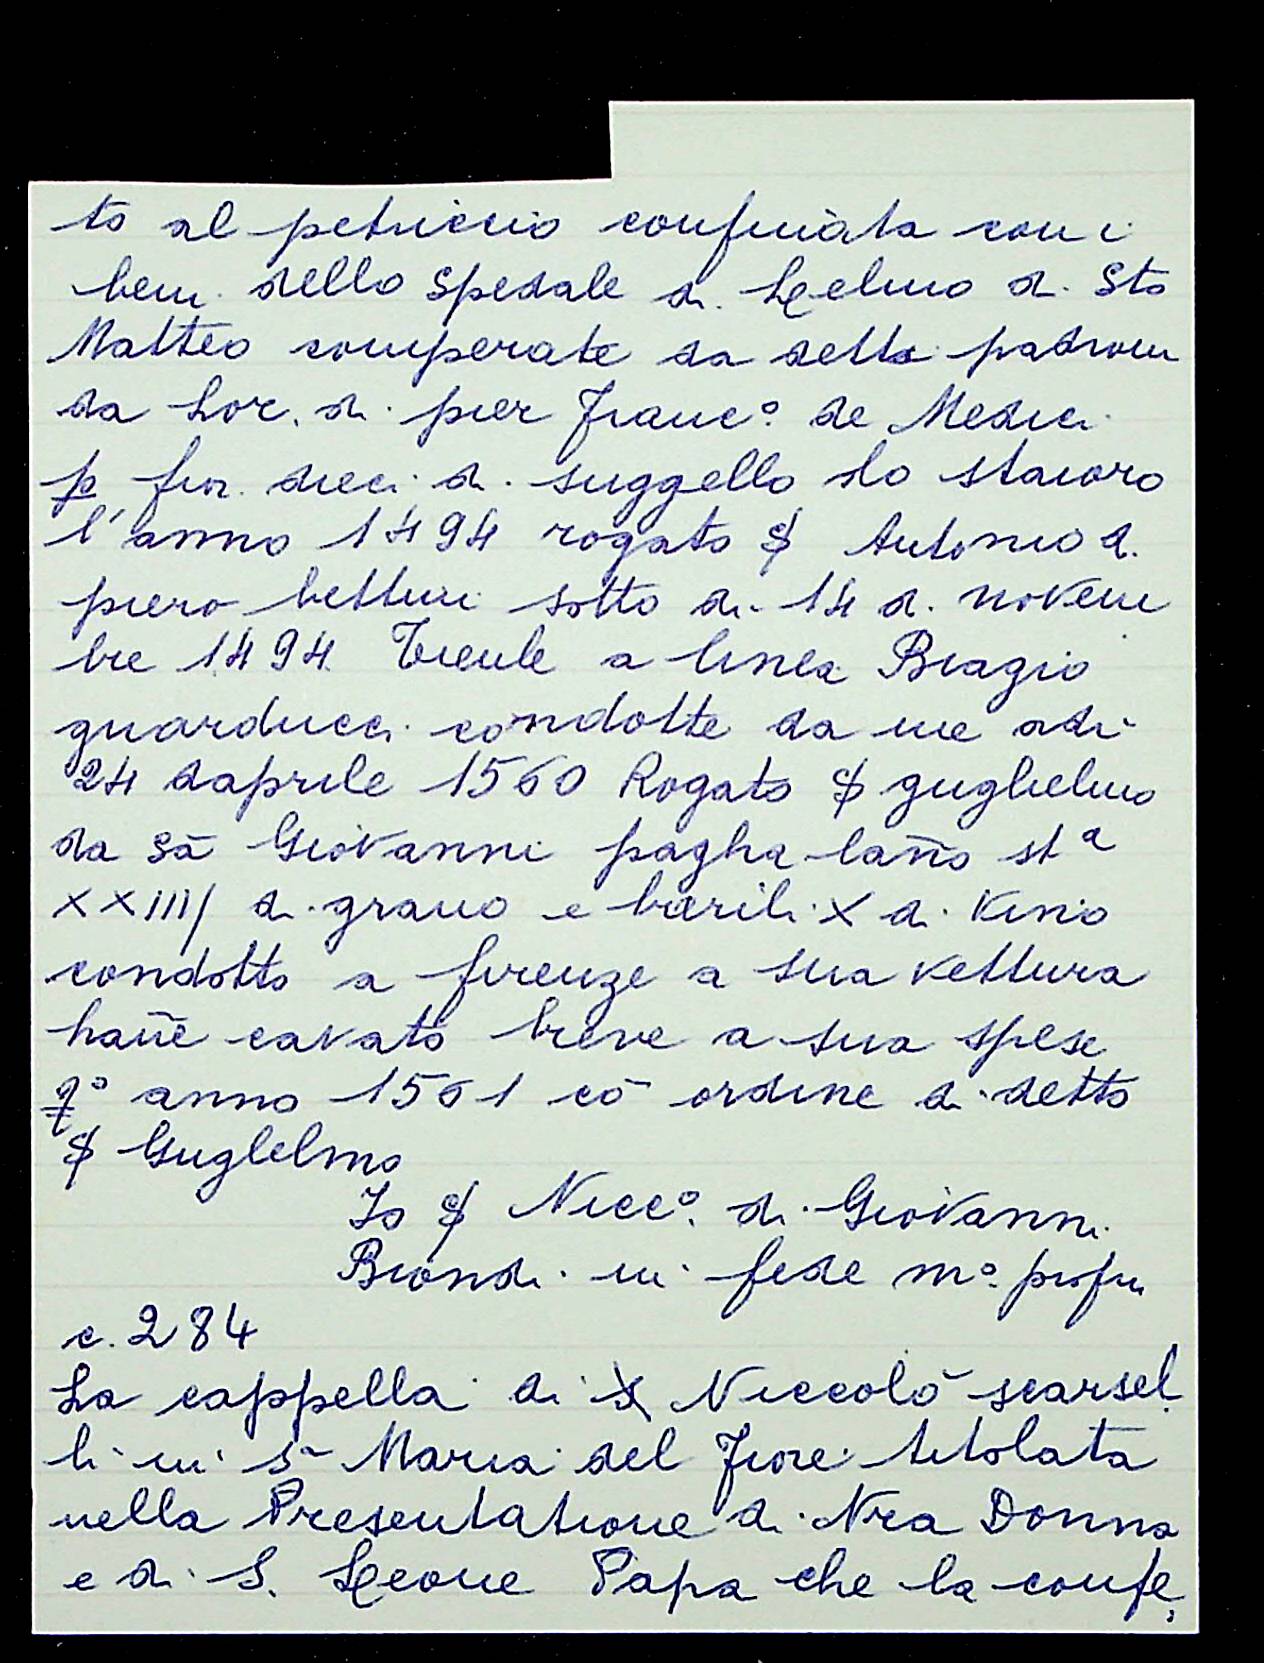 to al petriccio confinata con i
beni dello spedale di Lelmo di Sto
Matteo comperate da detti padroni
da Lor. di pier Franc.º de Medici
p fior. dieci di suggello lo staioro
l'anno 1494 rogato $ Antonio di
piero bettini sotto di 14 di novem
bre 1494 Tienle a linea Biagio
guarducci condotte da me adi
24 daprile 1560 Rogato $ guglielmo
da Sā Giovanni pagha lano st a
XXIIII di grano e barili X di vino
condotto a firenze a sua vettura
hane cavato breve a sua spese
qº anno 1561 cō ordine di detto
$ Guglielmo
Io $ Nicc.º di Giovanni
Biondi in fede mº. propri
c. 284
La cappella di $ Niccolò scarsel
li in S Maria del Fiore titolata
nella Presentatione di Nra Donna
e di S. Leone Papa che la confe,